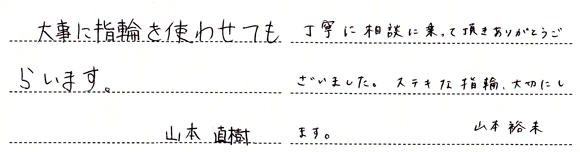 大事に指輪を使わせても
らいます。
山本 直樹
丁寧に相談に乗って頂きありがとうご
ざいました。ステキな指輪、大切にし
ます。
山本裕未